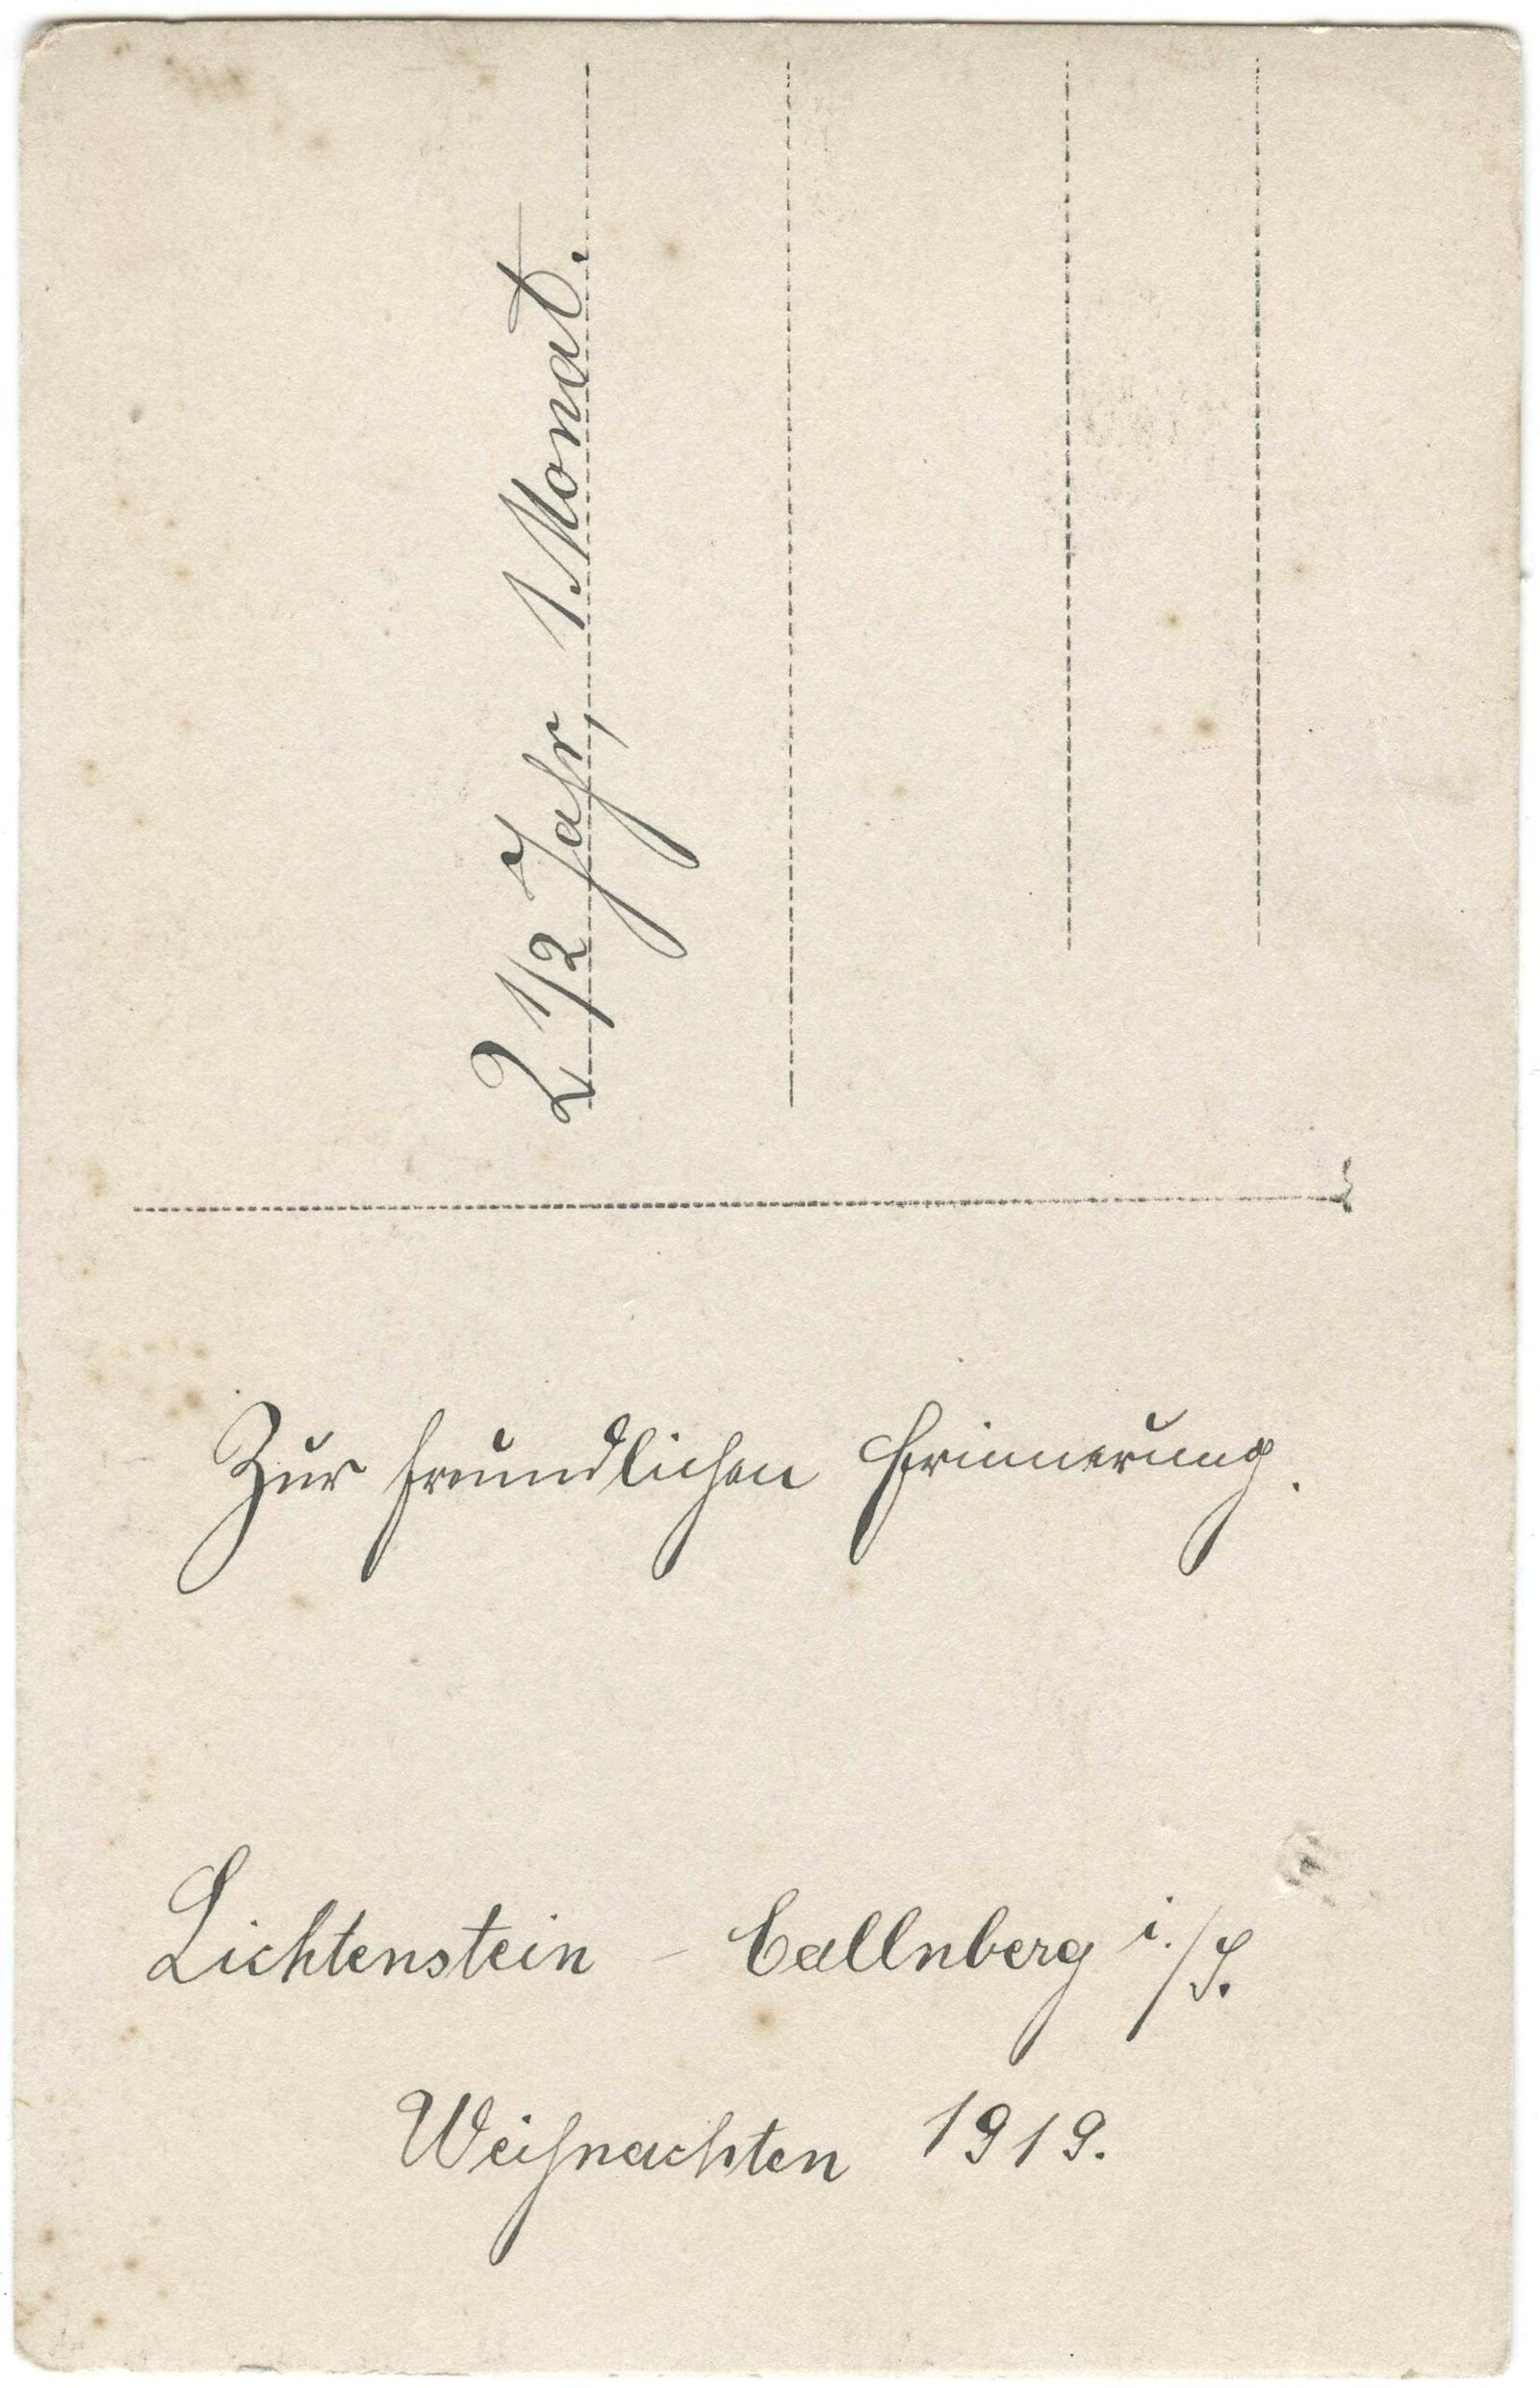 2 1/2 Jahr, 1 Monat.
Zur freundlichen Erinnerung.
Lichtenstein - Callnberg i./S.
Weihnachten 1919.